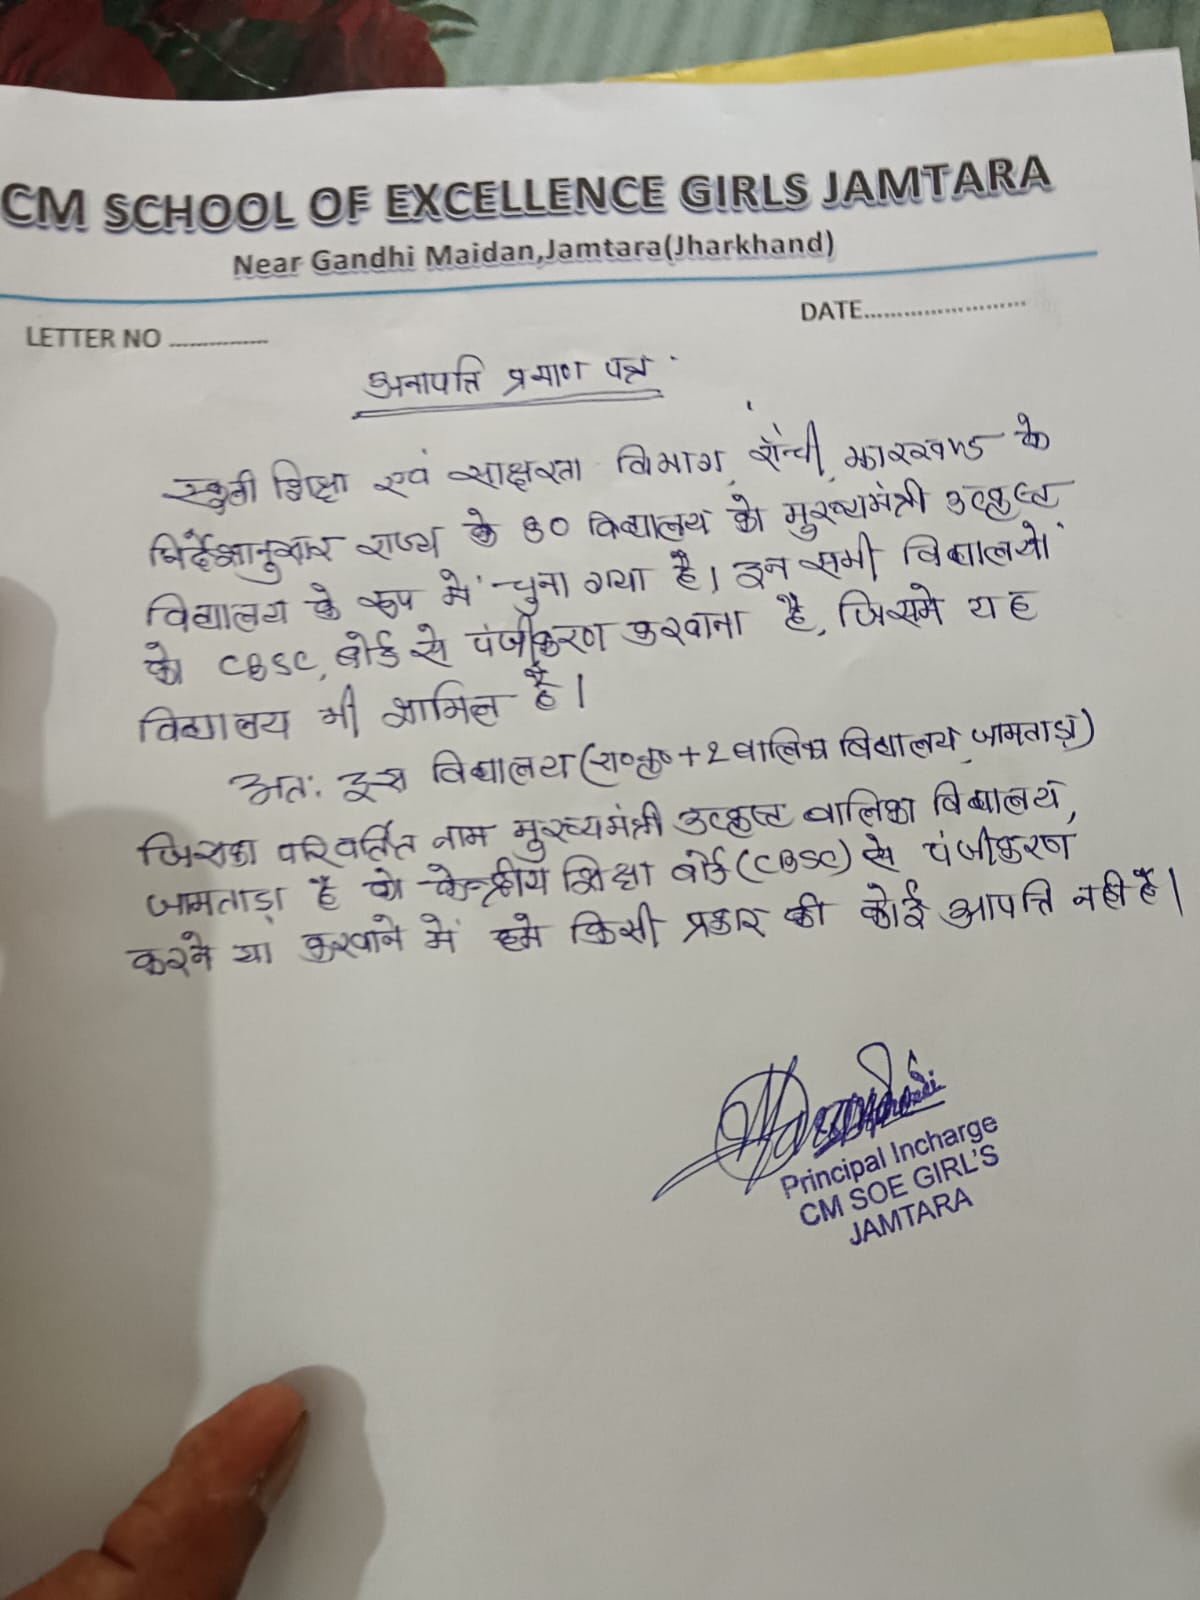 CM SCHOOL OF EXCELLENCE GIRLS JAMTARA
Near Gandhi Maidan,Jamtara(Jharkhand)
LETTER NO ...............
DATE........................
अनापत्ति प्रमाण पत्र
स्कूली शिक्षा एवं साक्षरता विभाग, राँची, झारखण्ड के
निर्देशानुसार राज्य के 80 विद्यालय को मुख्यमंत्री उत्कृष्ट
विद्यालय के रूप में चुना गया है। इन सभी विद्यालयों
को CBSC, बोर्ड से पंजीकरण करवाना है, जिसमे यह
विद्यालय भी शामिल है।
अतः इस विद्यालय (रा०कृ०+2 बालिका विद्यालय, जामताड़ा)
जिसका परिवर्तित नाम मुख्यमंत्री उत्कृष्ट बालिका विद्यालय,
जामताड़ा है को केन्द्रीय शिक्षा बोर्ड (CBSC) से पंजीकरण
करने या करवाने में हमे किसी प्रकार की कोई आपत्ति नही है।
Principal Incharge
CM SOE GIRL'S
JAMTARA